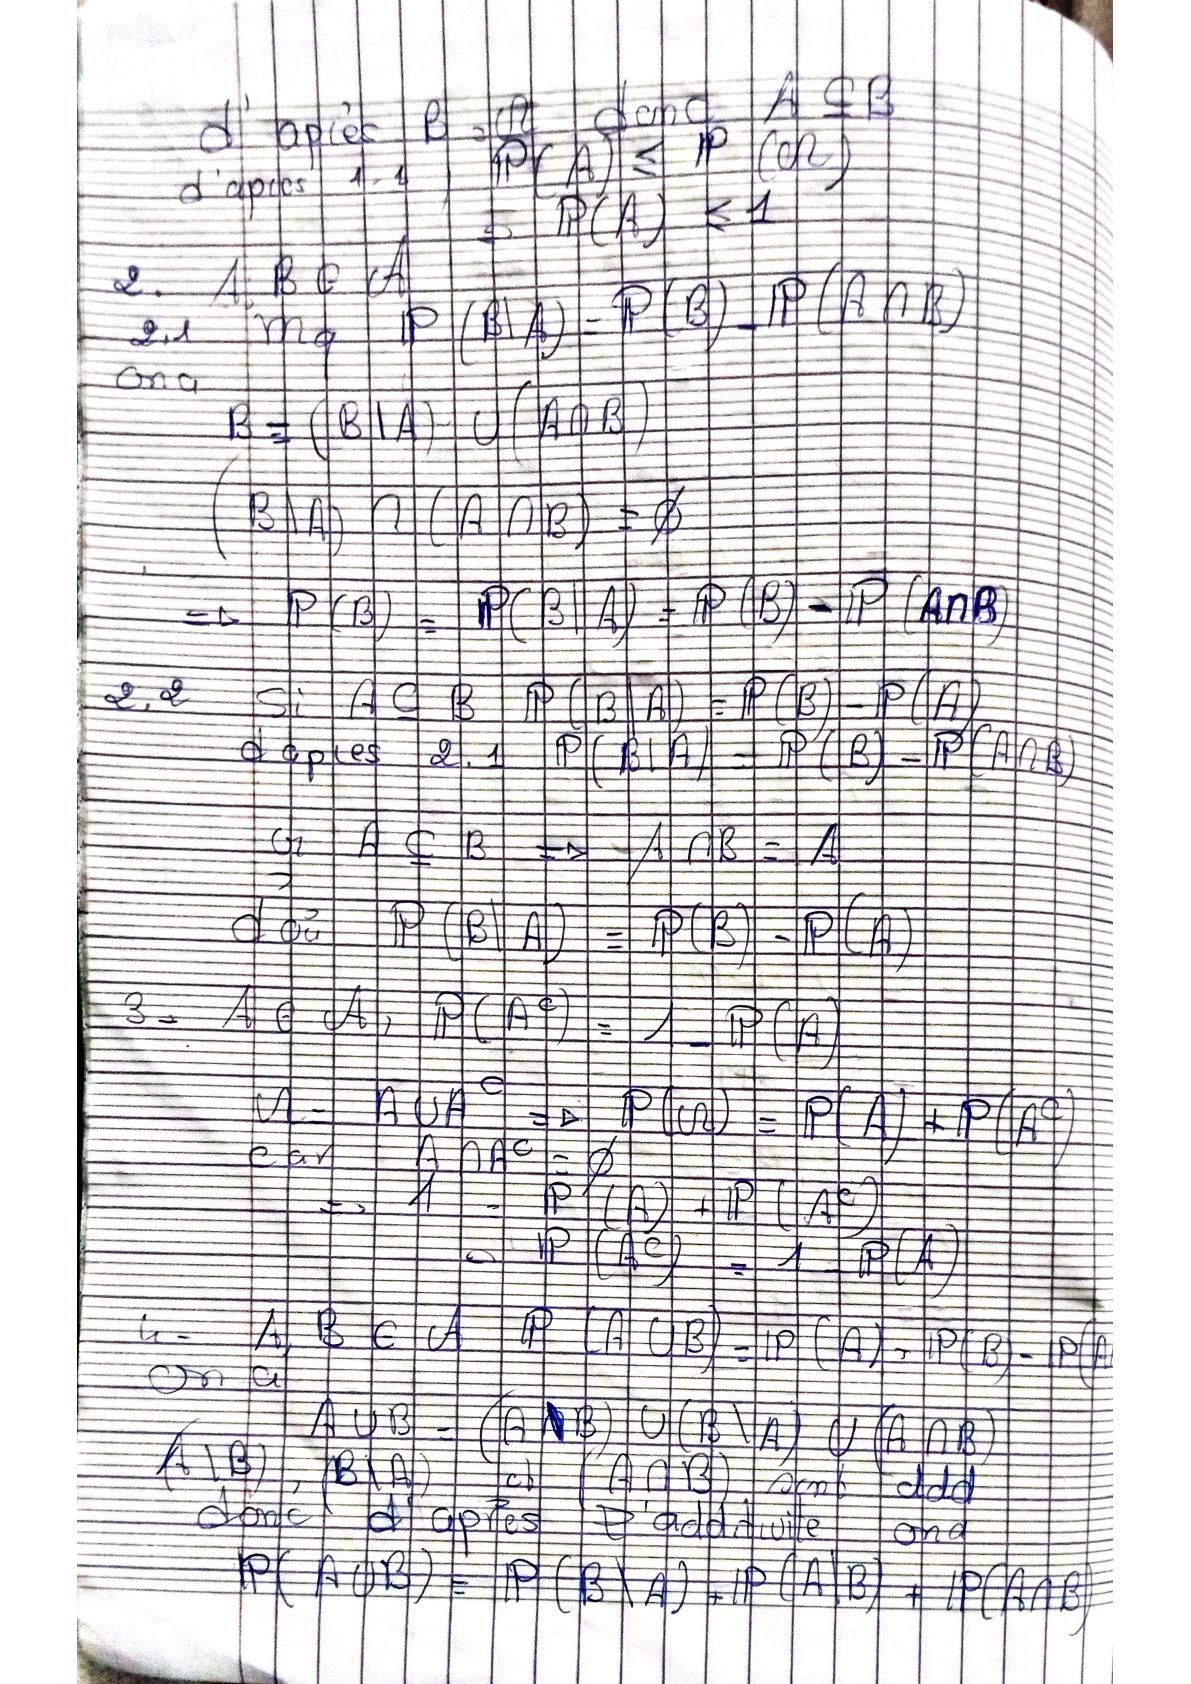 d'après B = Ω donc A ⊆ B
d'après 1-1, ℙ(A) ≤ ℙ(Ω)
⇒ ℙ(A) ≤ 1
2. A, B ∈ 𝒜
2.1 Mq ℙ(B\A) = ℙ(B) - ℙ(A∩B)
on a
B = (B\A) ∪ (A∩B)
(B\A) ∩ (A∩B) = ∅
⇒ ℙ(B) = ℙ(B\A) = ℙ(B) - ℙ(A∩B)
2.2 Si A ⊆ B ℙ(B\A) = ℙ(B) - ℙ(A)
d'après 2.1 ℙ(B\A) = ℙ(B) - ℙ(A∩B)
or A ⊆ B ⇒ A∩B = A
d'où ℙ(B\A) = ℙ(B) - ℙ(A)
3- A ∈ 𝒜, ℙ(Aᶜ) = 1 - ℙ(A)
Ω = A∪Aᶜ ⇒ ℙ(Ω) = ℙ(A) + ℙ(Aᶜ)
car A∩Aᶜ = ∅
⇒ 1 = ℙ(A) + ℙ(Aᶜ)
ℙ(Aᶜ) = 1 - ℙ(A)
4- A, B ∈ 𝒜 ℙ(A∪B) = ℙ(A) + ℙ(B) - ℙ(A
on a
A∪B = (A\B) ∪ (B\A) ∪ (A∩B)
(A\B), (B\A) et (A∩B) sont ddd
donc d'après l'additivité on a
ℙ(A∪B) = ℙ(B\A) + ℙ(A\B) + ℙ(A∩B)